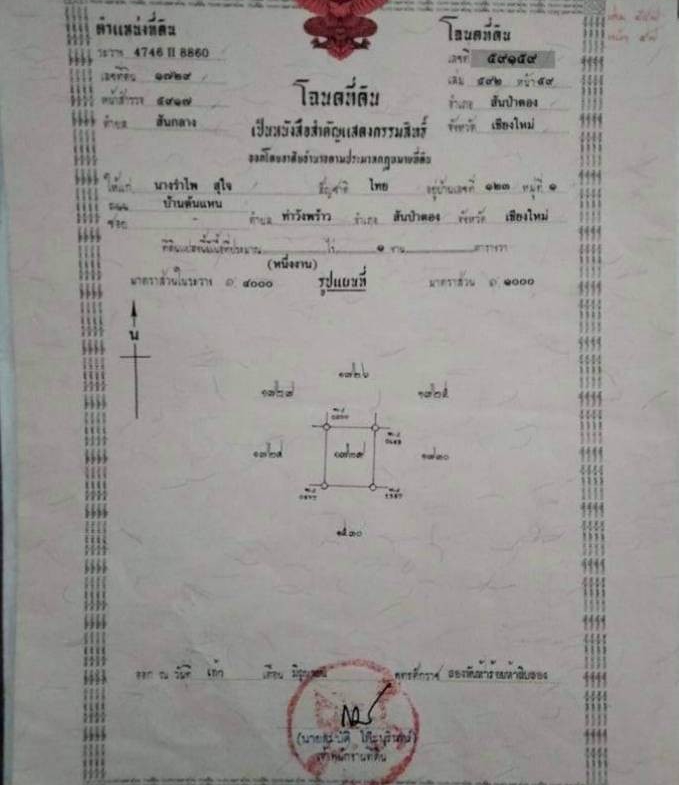 ตำแหน่งที่ดิน
ระวาง 4746 II 8860
เลขที่ดิน ๑๗๒๙
หน้าสำรวจ ๕๙๑๗
ตำบล สันกลาง
โฉนดที่ดิน
เลขที่ ๕๙๑๕๙
เล่ม ๕๙๒ หน้า ๕๙
อำเภอ สันป่าตอง
จังหวัด เชียงใหม่
โฉนดที่ดิน
เป็นหนังสือสำคัญแสดงกรรมสิทธิ์
ออกโดยอาศัยอำนาจตามประมวลกฎหมายที่ดิน
ให้แก่ นางรำไพ สุใจ สัญชาติ ไทย อยู่บ้านเลขที่ ๑๒๓ หมู่ที่ ๑
ถนน บ้านต้นแหน
ซอย - ตำบล ท่าวังพร้าว อำเภอ สันป่าตอง จังหวัด เชียงใหม่
ที่ดินแปลงนี้มีเนื้อที่ประมาณ ไร่ ๑ งาน ตารางวา
(หนึ่งงาน)
มาตราส่วนในระวาง ๑: ๔๐๐๐ รูปแผนที่ มาตราส่วน ๑: ๑๐๐๐
น
๑๗๒๖
๑๗๒๕
๑๗๒๙
๑๗๓๐
๑๕๓๐
ออก ณ วันที่ เก้า เดือน มิถุนายน พุทธศักราช สองพันห้าร้อยห้าสิบสอง
เจ้าพนักงานที่ดิน